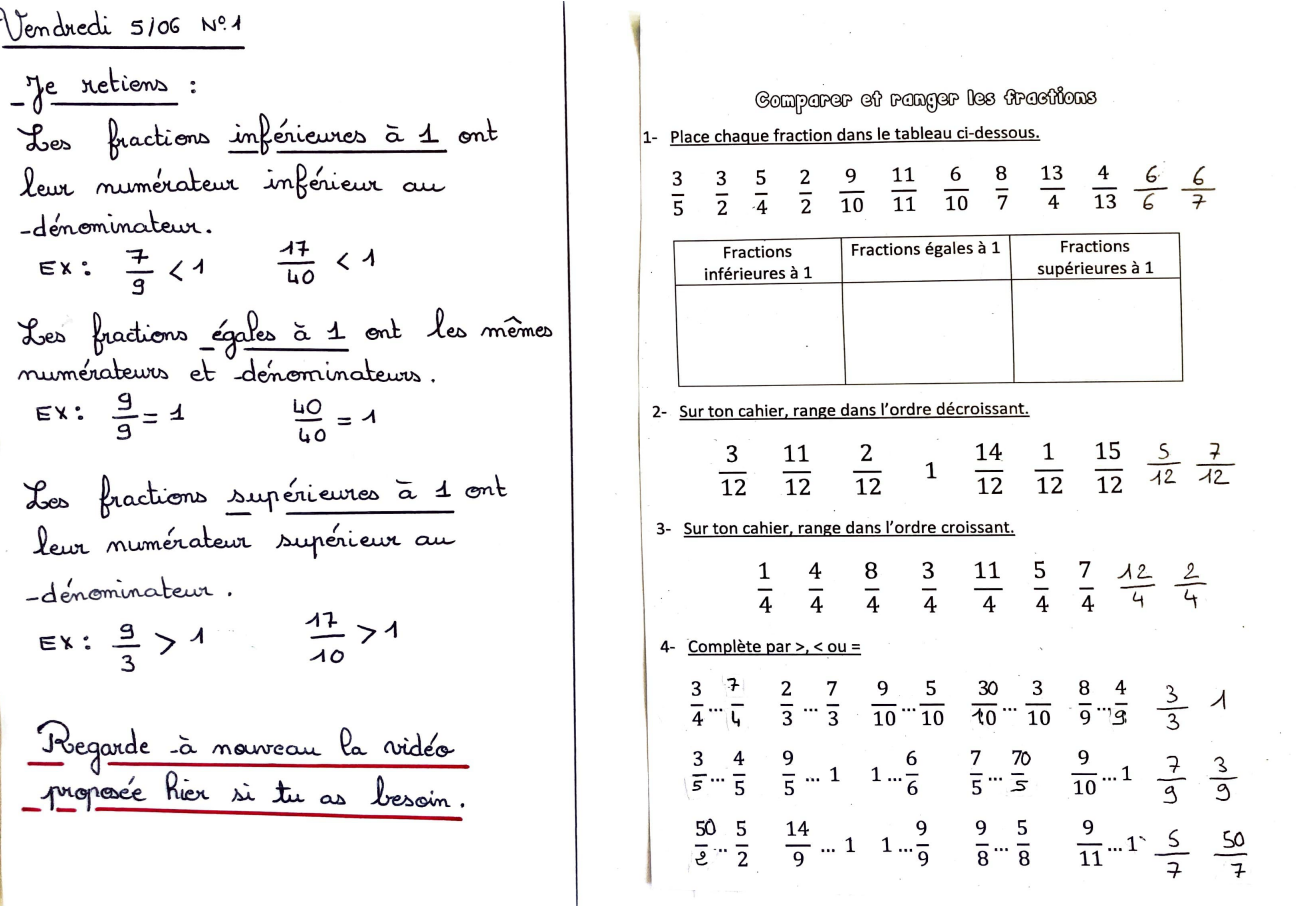 Vendredi 5/06 N°1
Je retiens :
Les fractions inférieures à 1 ont
leur numérateur inférieur au
dénominateur.
EX : 7/9 < 1 17/40 < 1
Les fractions égales à 1 ont les mêmes
numérateurs et dénominateurs.
EX : 9/9 = 1 40/40 = 1
Les fractions supérieures à 1 ont
leur numérateur supérieur au
dénominateur.
EX : 9/3 > 1 17/10 > 1
Regarde à nouveau la vidéo
proposée hier si tu as besoin.
Comparer et ranger les fractions
1- Place chaque fraction dans le tableau ci-dessous.
3/5 3/2 5/4 2/2 9/10 11/11 6/10 8/7 13/4 4/13 6/6 6/7
Fractions inférieures à 1
Fractions égales à 1
Fractions supérieures à 1
2- Sur ton cahier, range dans l'ordre décroissant.
3/12 11/12 2/12 1 14/12 1/12 15/12 5/12 7/12
3- Sur ton cahier, range dans l'ordre croissant.
1/4 4/4 8/4 3/4 11/4 5/4 7/4 12/4 2/4
4- Complète par >, < ou =
3/4 ... 7/4 2/3 ... 7/3 9/10 ... 5/10 30/10 ... 3/10 8/9 ... 4/9 3/3 1
3/5 ... 4/5 9/5 ... 1 1 ... 6/6 7/5 ... 70/5 9/10 ... 1 7/9 3/9
50/2 ... 5/2 14/9 ... 1 1 ... 9/9 9/8 ... 5/8 9/11 ... 1 5/7 50/7